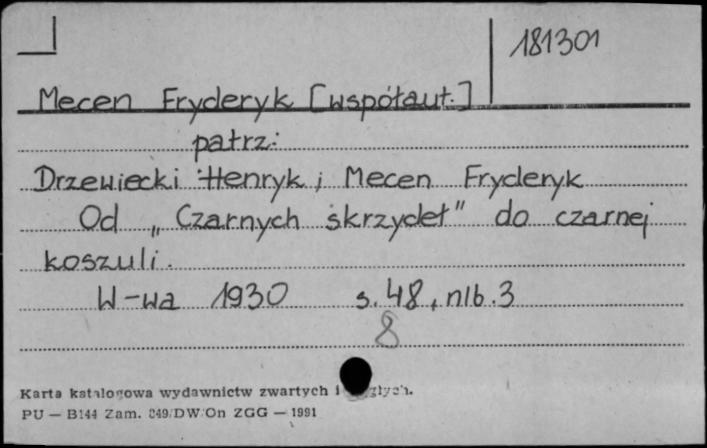 181301
Mecen Fryderyk [współaut.]
patrz:
Drzewiecki Henryk i Mecen Fryderyk
Od „Czarnych skrzydeł" do czarnej
koszuli.
W-wa 1930 s. 48, nlb. 3
8
Karta katalogowa wydawnictw zwartych i
PU — B144 Zam. 849/DW/On ZGG — 1991